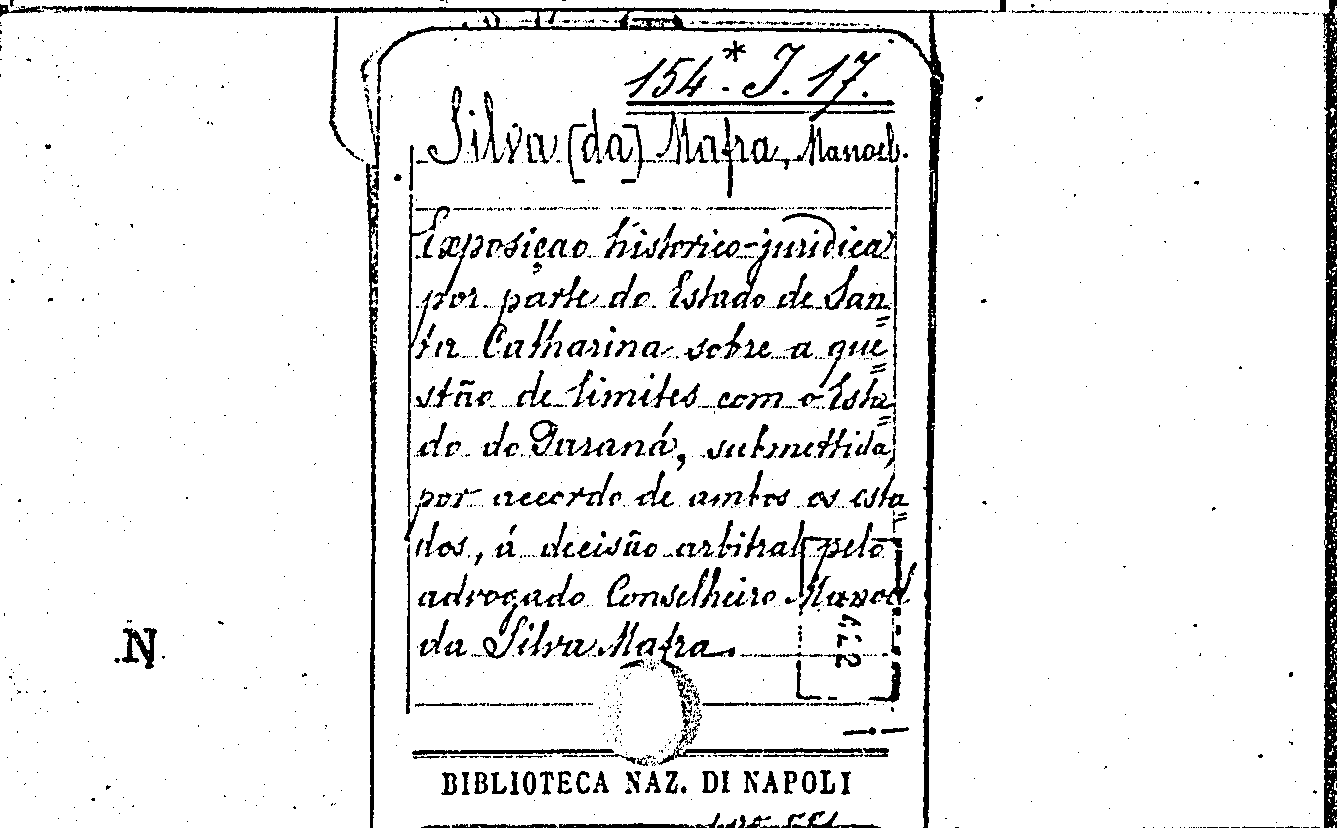 154.* J. 17.
Silva (da) Mafra, Manoel.
Exposiçao historico-juridica
por parte do Estado de San=
ta Catharina sobre a que=
stão de limites com o Esta=
do do Paraná, submettida,
por accordo de ambos os esta=
dos, á decisão arbitral pelo
advogado Conselheiro Manoel
da Silva Mafra.
422
N
BIBLIOTECA NAZ. DI NAPOLI